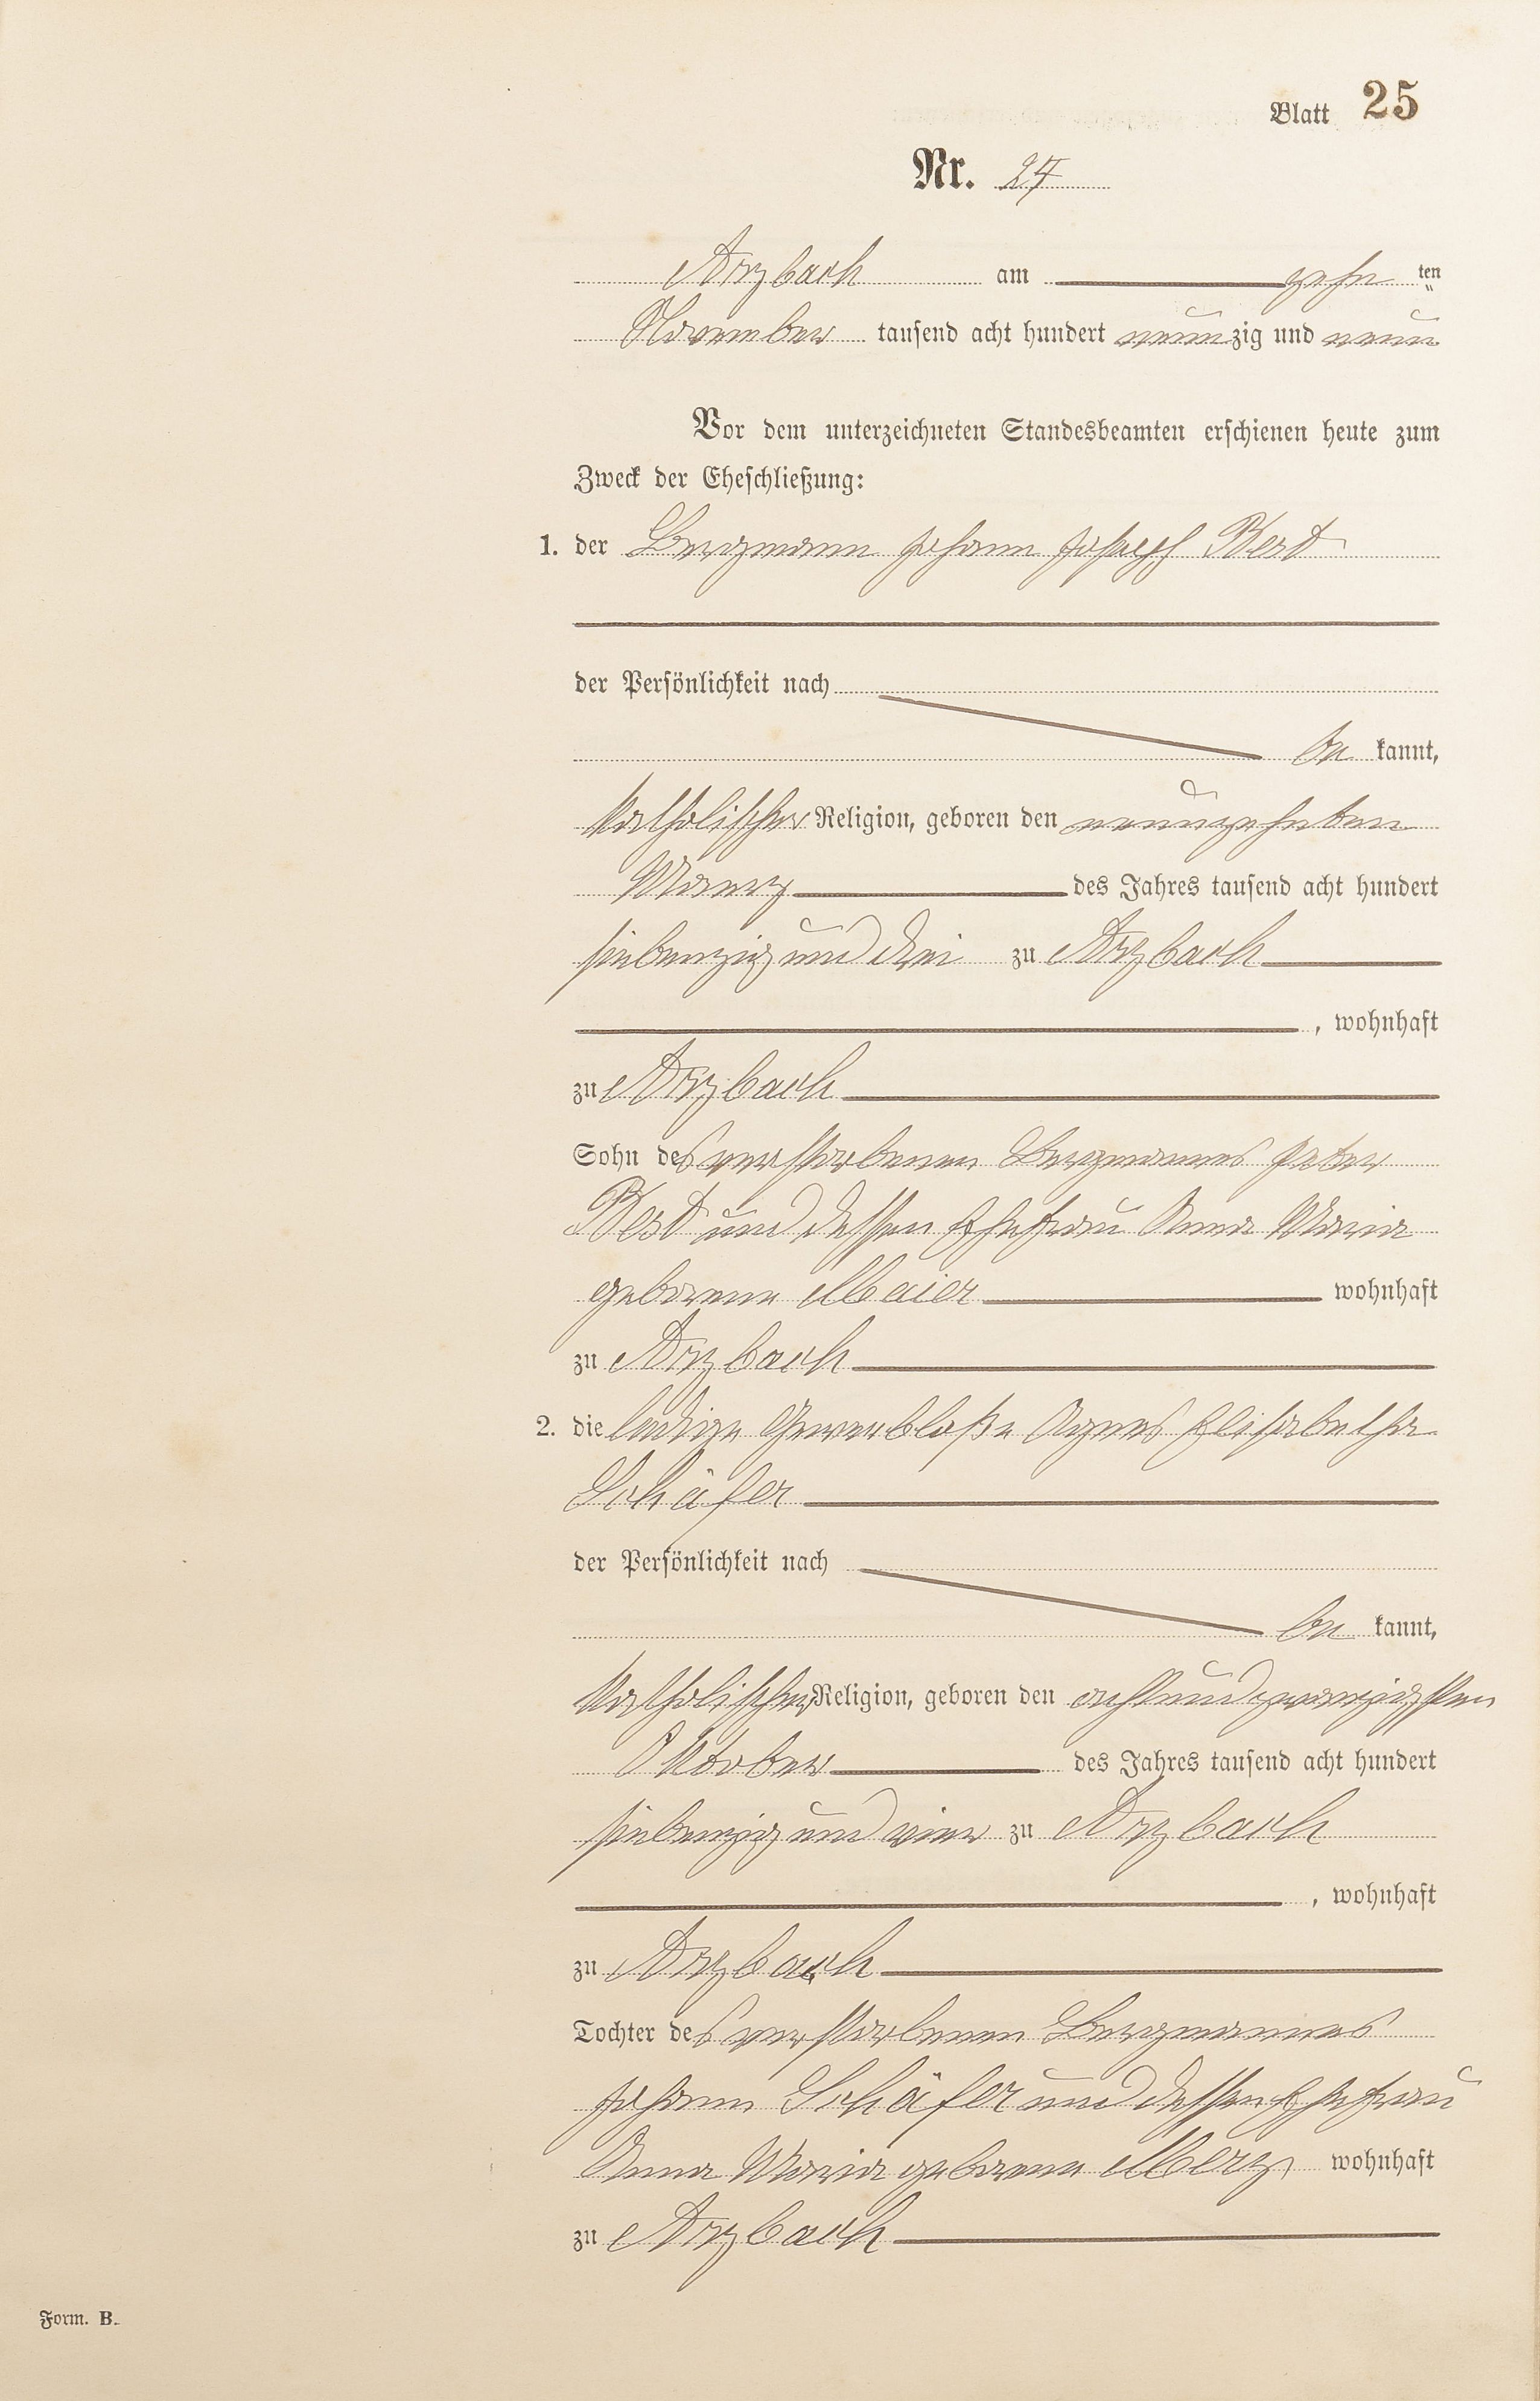 Blatt 25
Nr. 24
Arzbach am zehn ten
November tausend acht hundert neunzig und neun
Vor dem unterzeichneten Standesbeamten erschienen heute zum
Zweck der Eheschließung:
1. der Bergmann Johann Joseph
der Persönlichkeit nach
be kannt,
katholischer Religion, geboren den neunzehnten
Maerz des Jahres tausend acht hundert
siebenzig und drei zu Arzbach
, wohnhaft
zu Arzbach
Sohn des verstorbenen Bergmannes Peter
und dessen Ehefrau Anna Maria
geborene Maier wohnhaft
zu Arzbach
2. die ledige Gewerbloße Agnes Elisabetha
Schäfer
der Persönlichkeit nach
be kannt,
katholischer Religion, geboren den achtundzwanzigsten
Oktober des Jahres tausend acht hundert
siebenzig und vier zu Arzbach
, wohnhaft
zu Arzbach
Tochter des verstorbenen Bergmannes
Johann Schäfer und dessen Ehefrau
Anna Maria geborene Merz wohnhaft
zu Arzbach
Form. B.